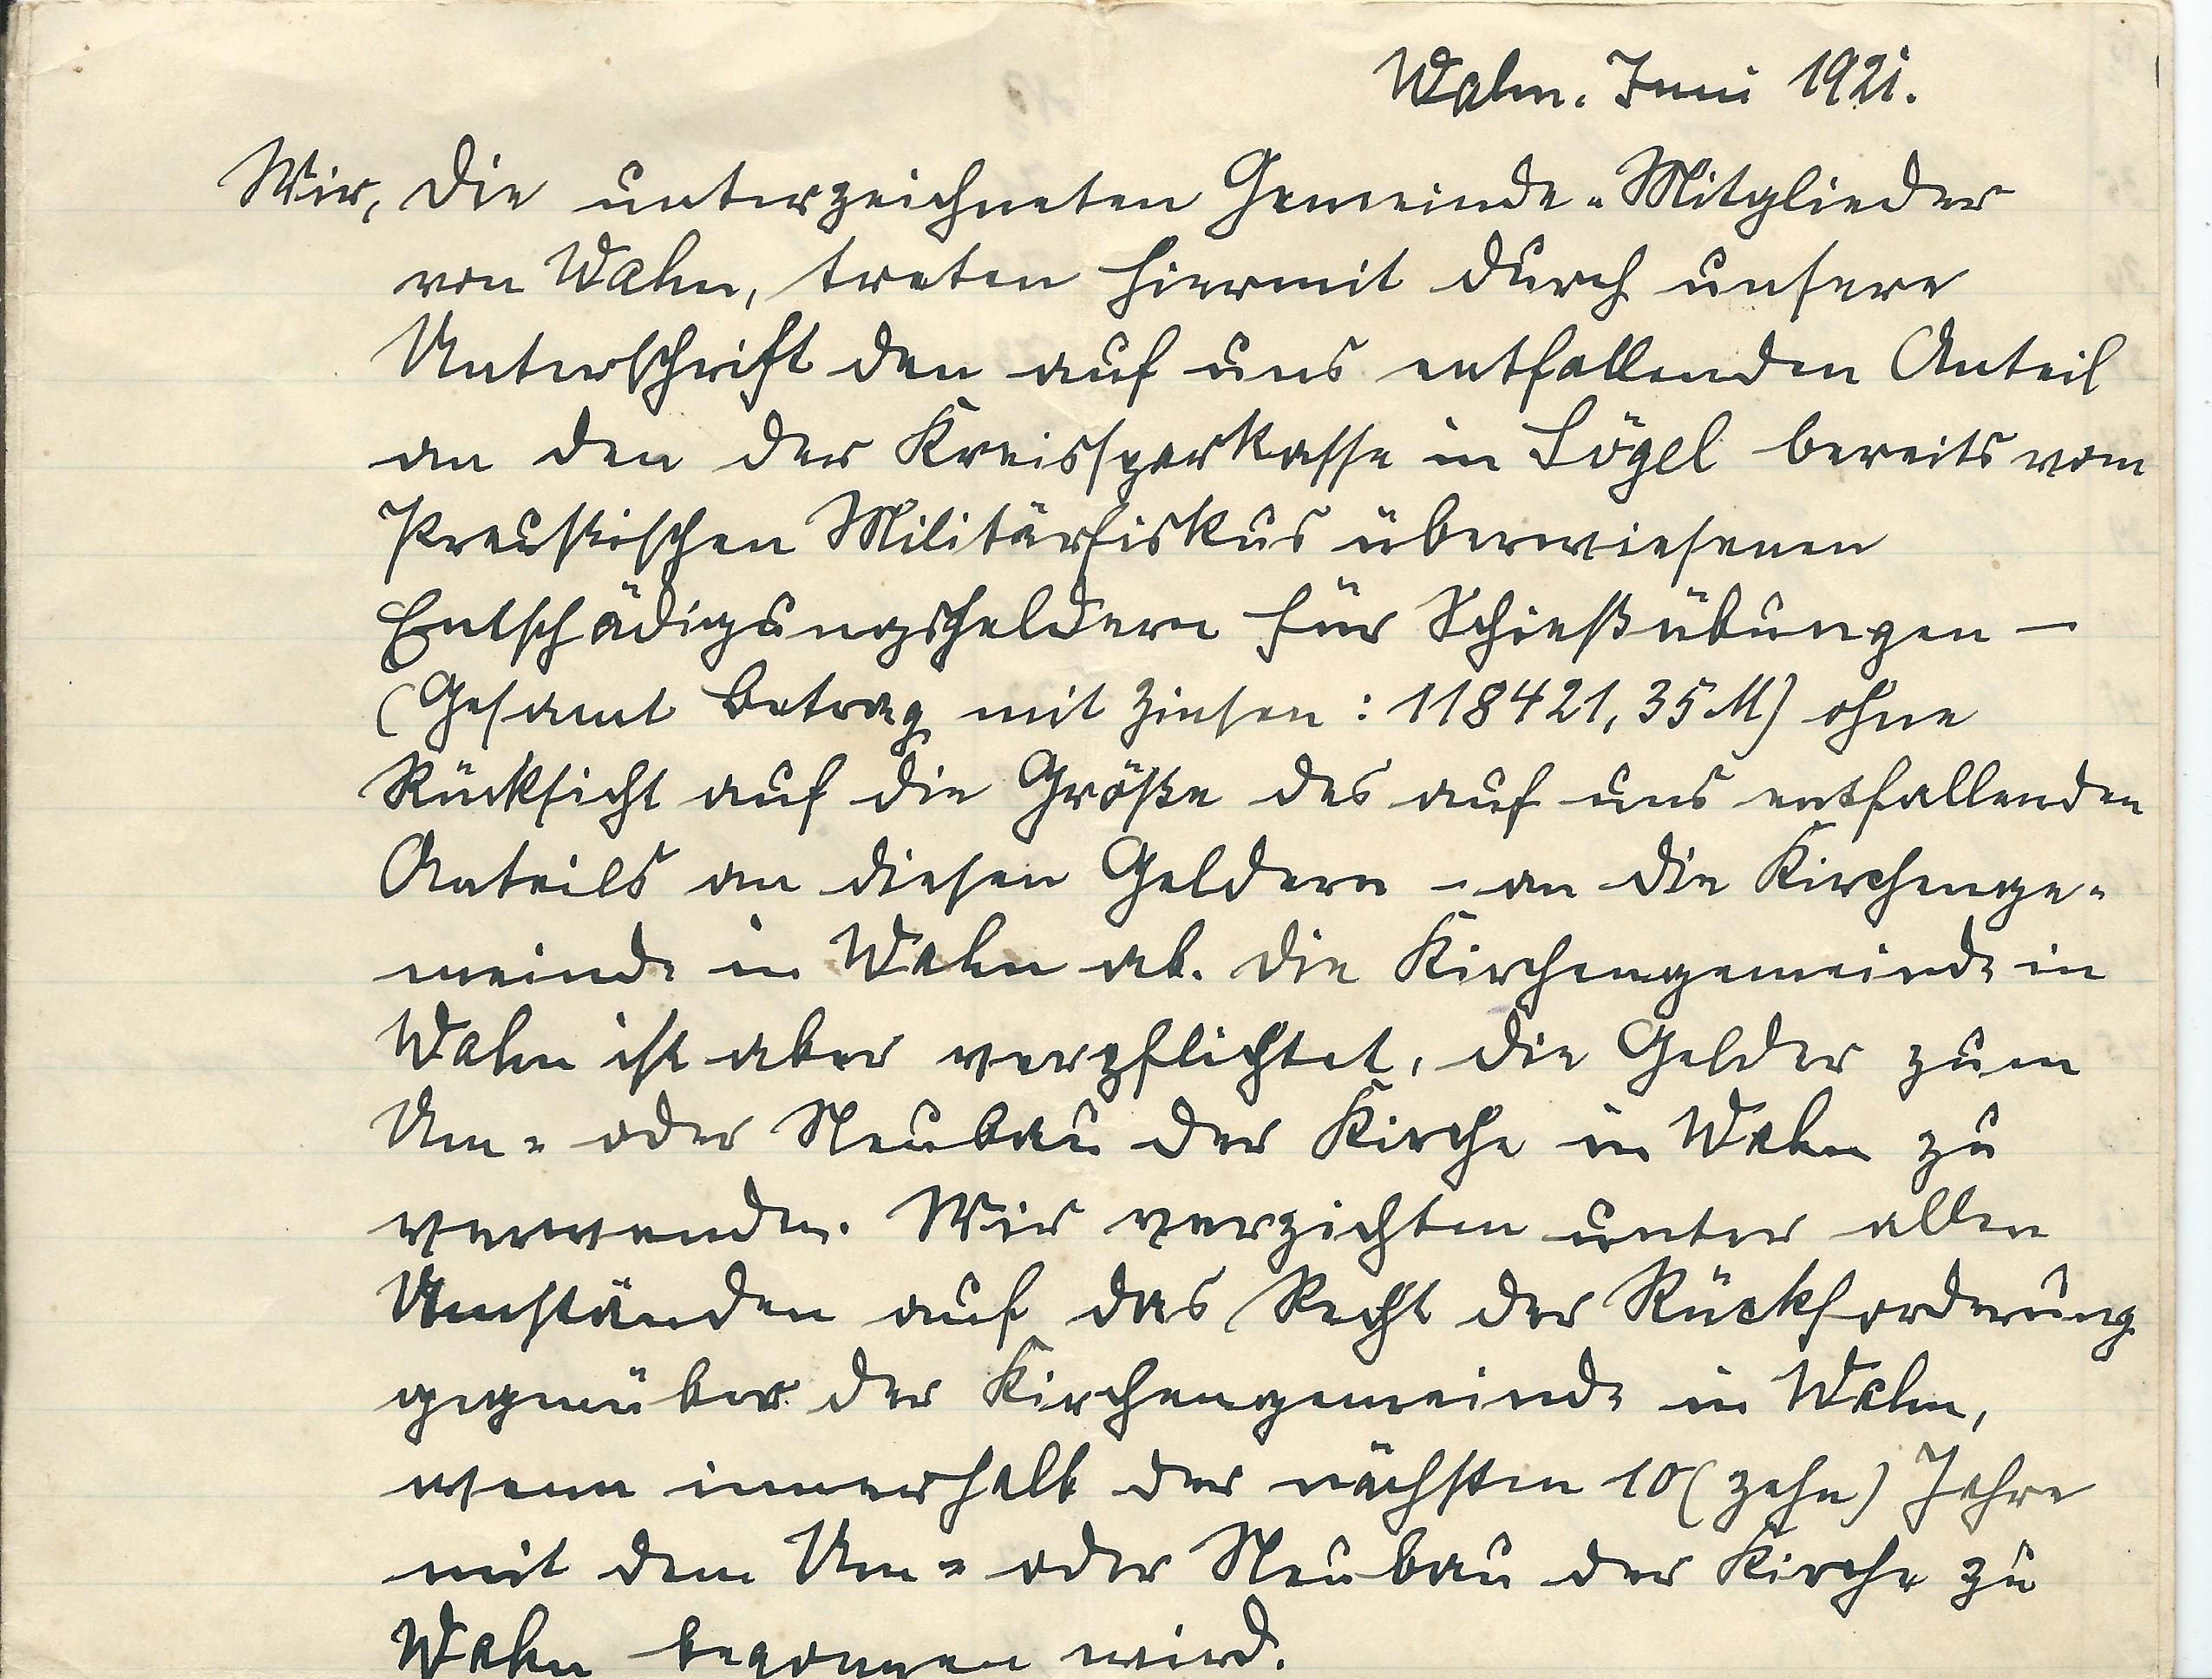 Wahn. Juni 1921.
Wir, die unterzeichneten Gemeinde-Mitglieder
von Wahn, treten hiermit durch unsere
Unterschrift den auf uns entfallenden Anteil
an den der Kreissparkasse in Sögel bereits vom
Preußischen Militärfiskus überwiesenen
Entschädigungsgeldern für Schießübungen —
(Gesamt Betrag mit Zinsen: 118421,35 M) ohne
Rücksicht auf die Größe des auf uns entfallenden
Anteils an diesen Geldern - an die Kirchenge-
meinde in Wahn ab. Die Kirchengemeinde in
Wahn ist aber verpflichtet, die Gelder zum
Um- oder Neubau der Kirche in Wahn zu
verwenden. Wir verzichten unter allen
Umständen auf das Recht der Rückforderung
gegenüber der Kirchengemeinde in Wahn,
wenn innerhalb der nächsten 10 (zehn) Jahre
mit dem Um- oder Neubau der Kirche zu
Wahn begonnen wird.